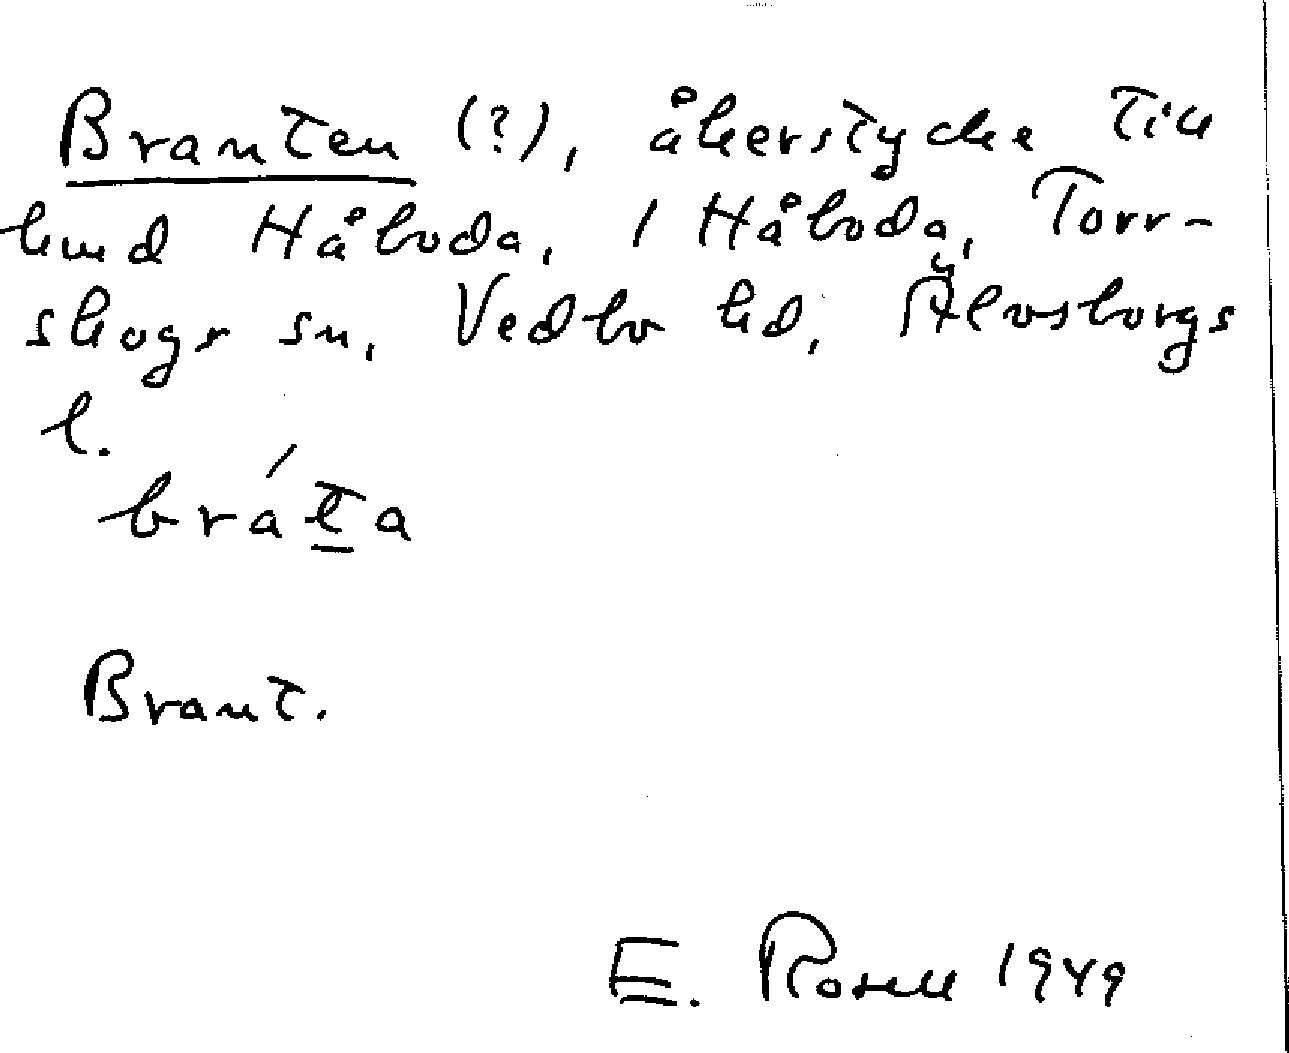 Branten (?), åkerstycke till
hmd Håboda, 1 Håboda, Torr-
skogs sn, Vedbo hd, Älvsborgs
l.
bráta
Brant.
E. Rosell 1949